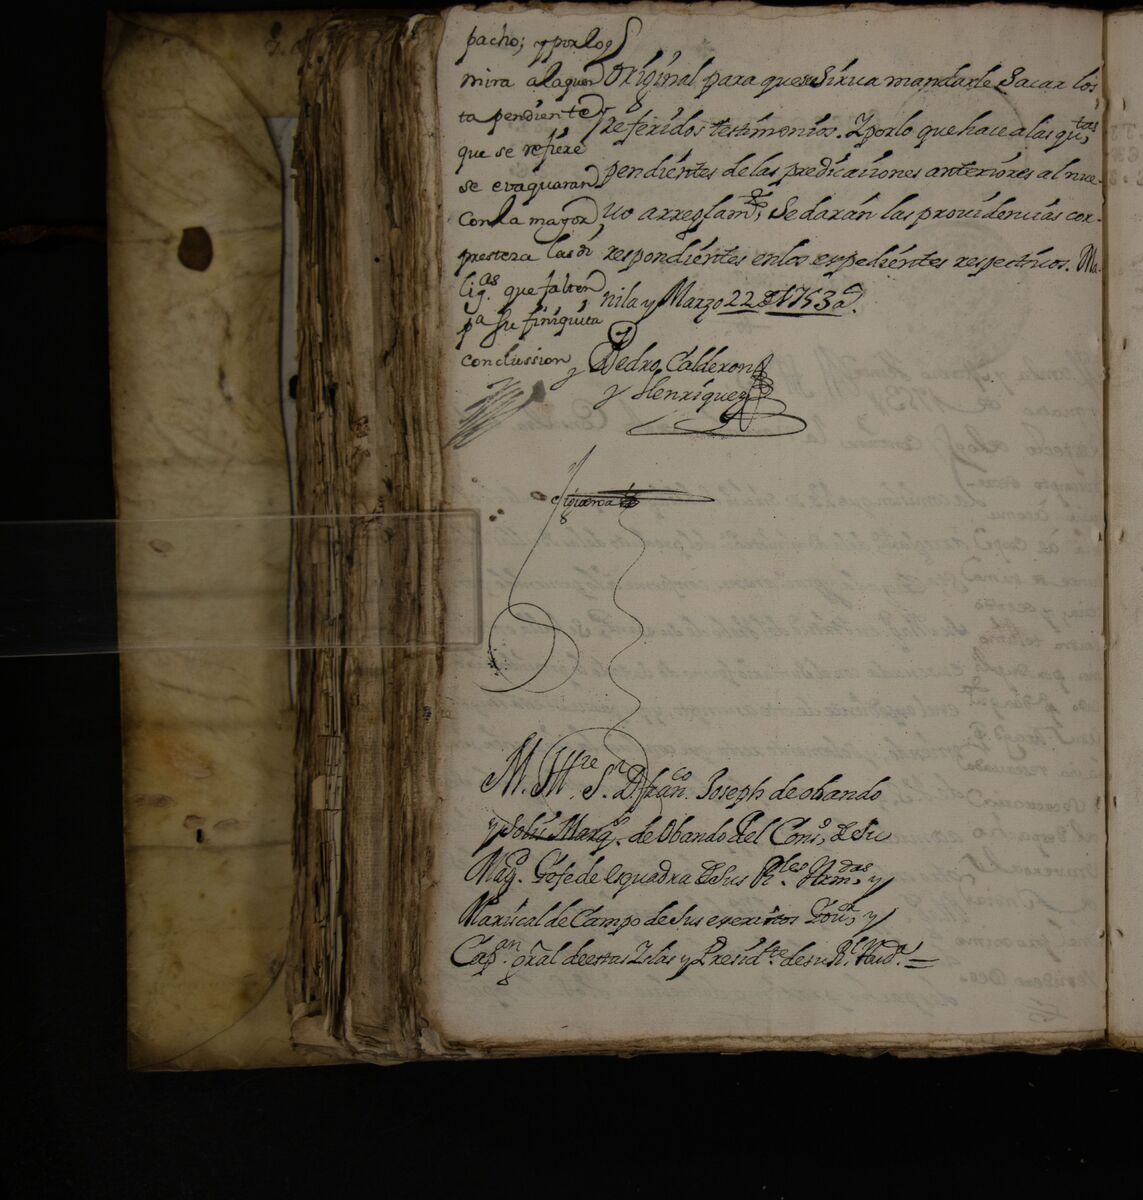 pacho; y por lo q̃
mira a la quen
ta pendiente
que se refiere
se evaquaran
con la mayor
presteza las di
lig.as que falten
p.a su finiquita
conclussion
Original para que se sirva mandarle Sacar los
referidos testimonios. Y por lo que hace a las qu.tas
pendientes de las predicaciones anteriores al nue-
vo arreglam.to, Se darán las providencias cor-
respondientes en los expedientes respectivos. Ma-
nila y Marzo 22 de 1753 a.
Pedro Calderon
y Henriquez
Figueroa
M. Ill.re S.r D. fran.co Joseph de obando
y Solis Marq.s de Obando del Cons.o de Su
Mag.d Gefe de esquadra de Sus R.les Arm.das y
Mariscal de Campo de Sus exercitos Gov.or y
Cap.an gral de estas Islas y Presid.te de su R.l Aud.a